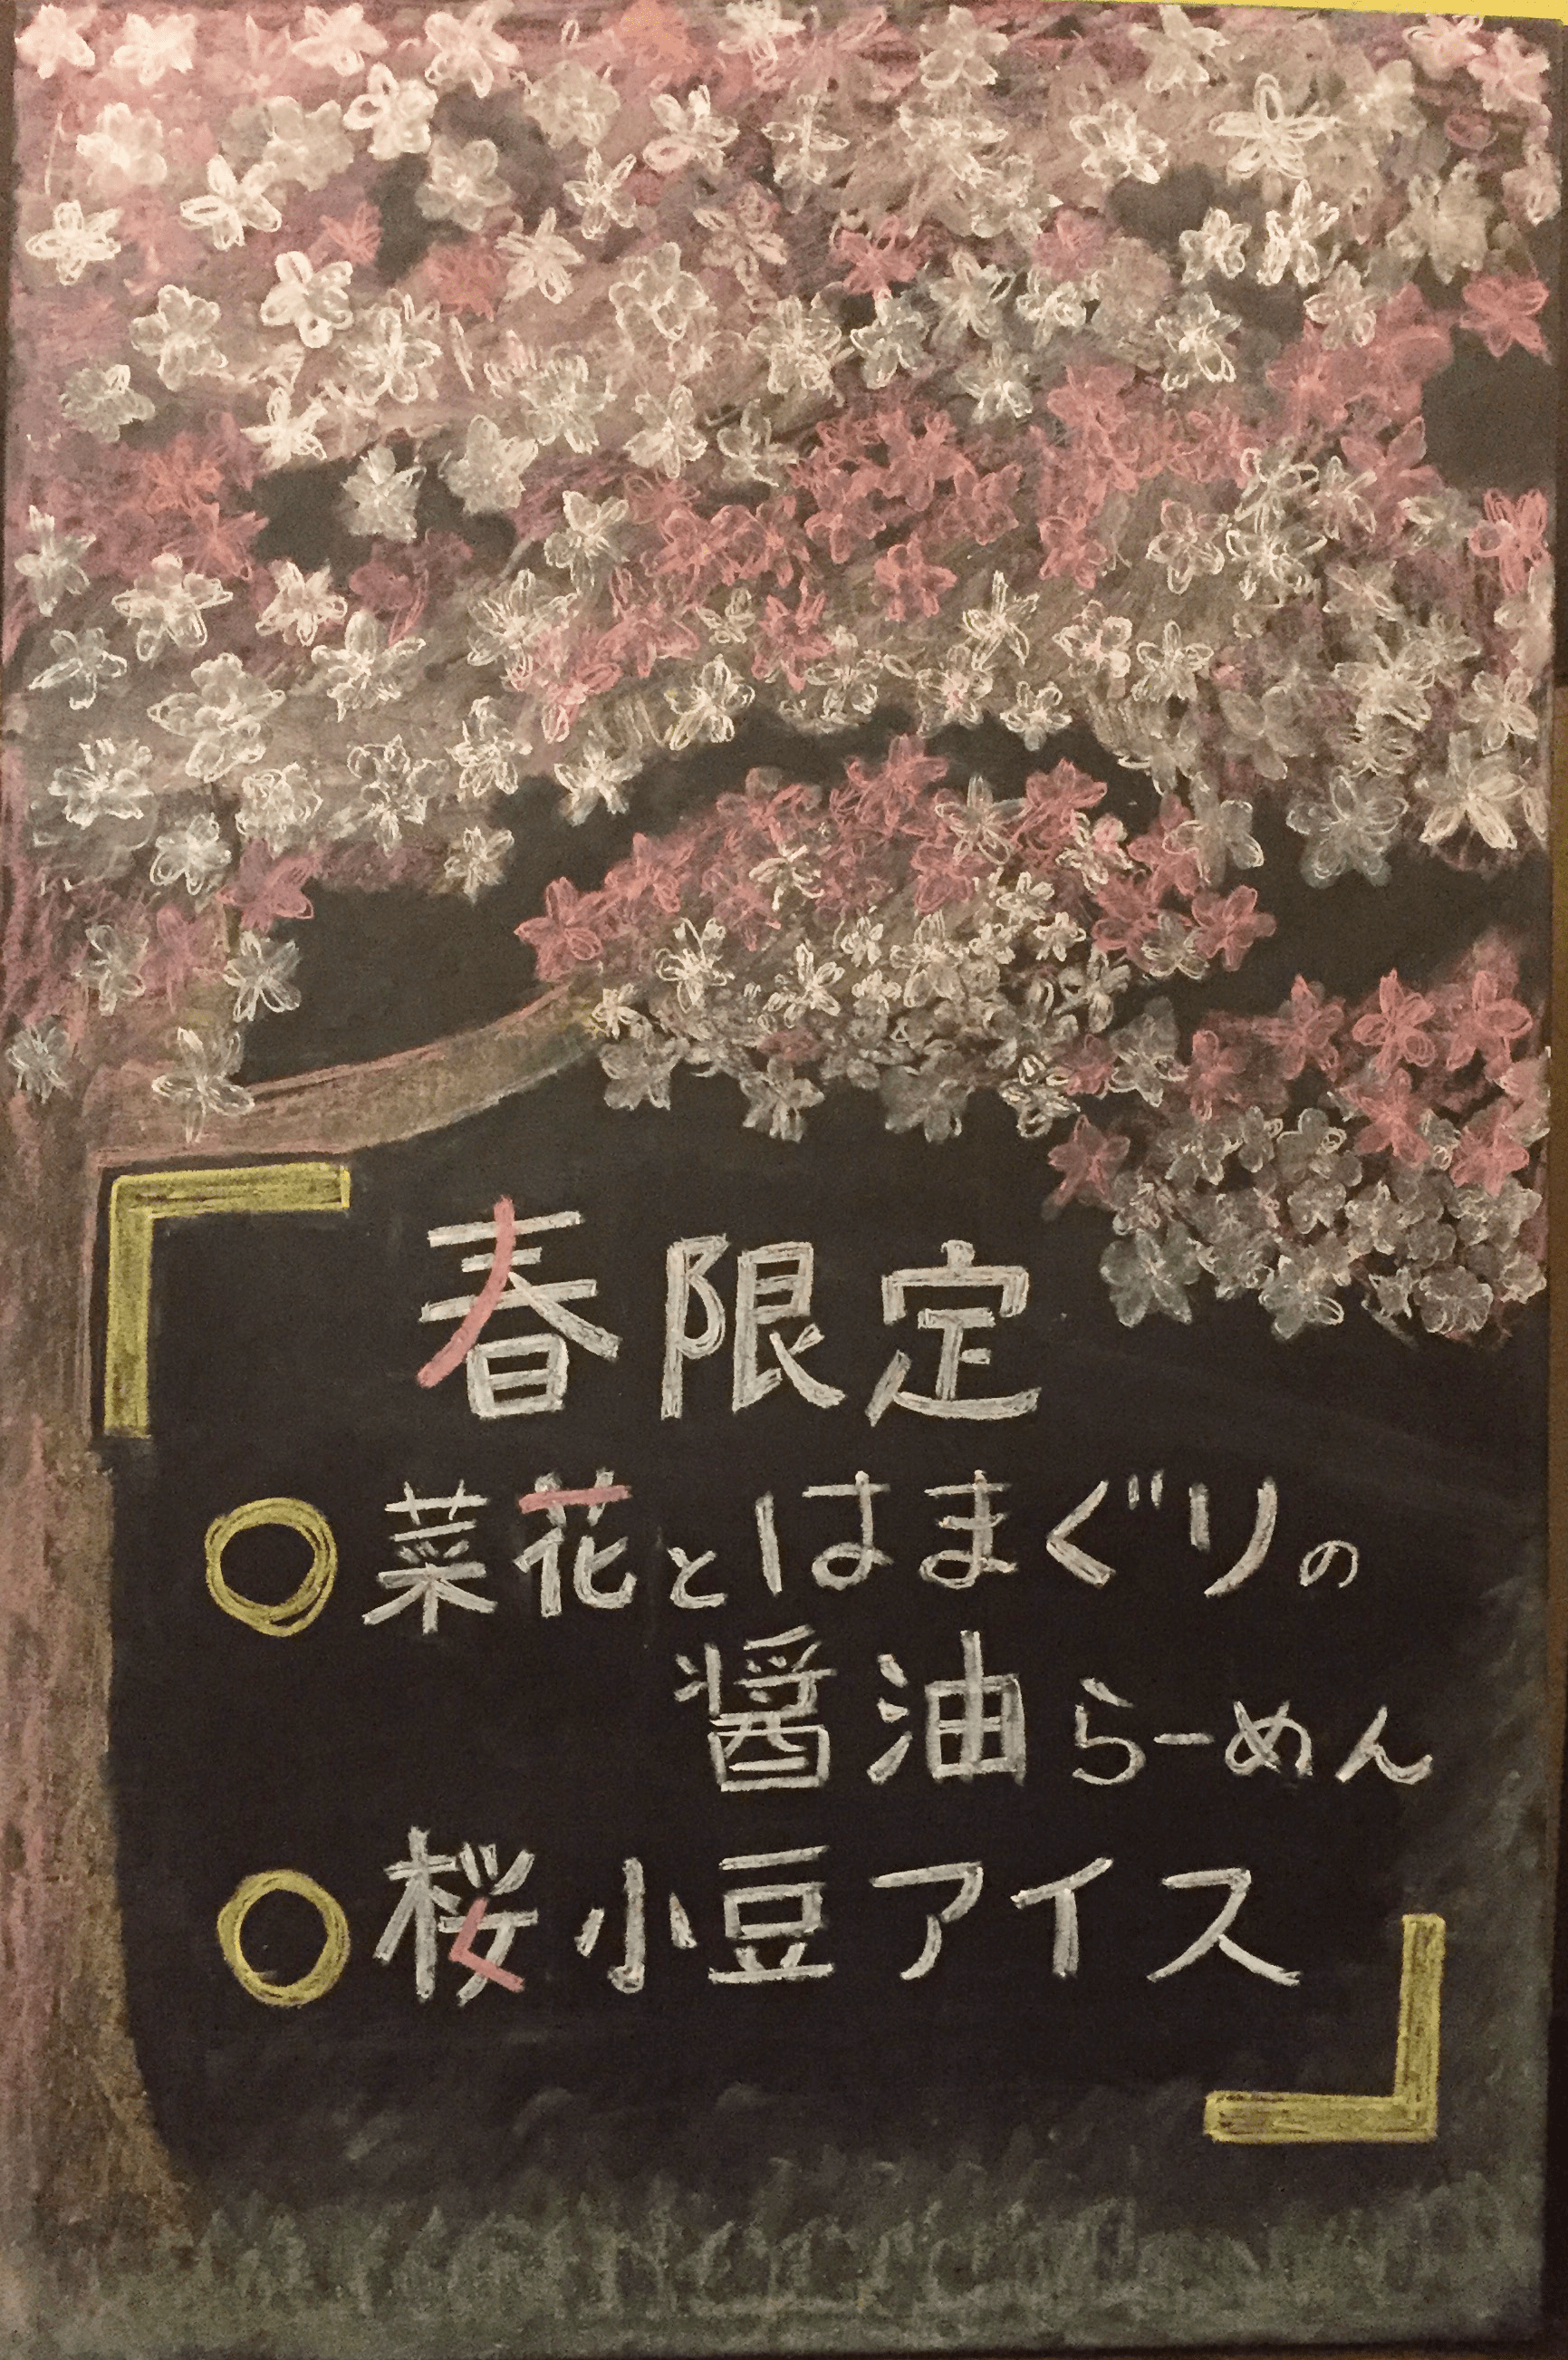 春限定
○菜花とはまぐりの
醤油らーめん
○桜小豆アイス